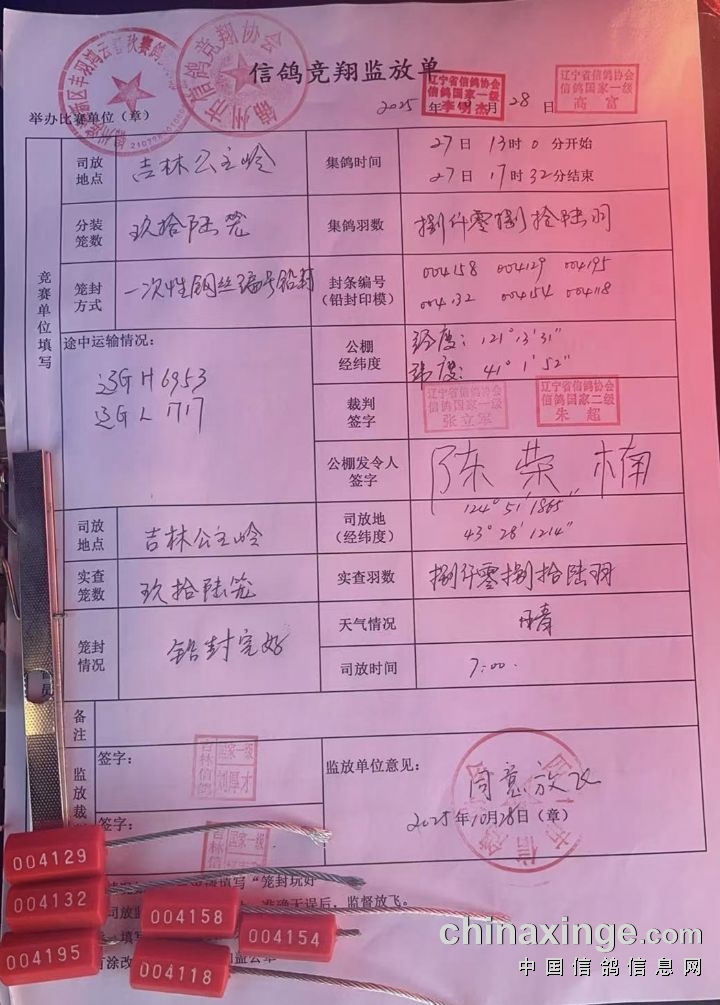 信鸽竞翔监放单
锦州市信鸽竞翔协会
辽宁省信鸽协会
信鸽国家一级
李明杰
辽宁省信鸽协会
信鸽国家一级
高富
举办比赛单位（章）
2025 年 月 28 日
竞赛单位填写
司放地点 吉林公主岭 集鸽时间 27日 13时0分开始
27日 17时32分结束
分装笼数 玖拾陆笼 集鸽羽数 捌仟零捌拾陆羽
笼封方式 一次性钢丝编号铅封 封条编号（铅封印模） 004158 004129 004195
004132 004154 004118
途中运输情况：
辽G H6953
辽G L1717
公棚经纬度 经度：121°13′31″
纬度：41°1′52″
裁判签字
辽宁省信鸽协会
信鸽国家一级
张立军
辽宁省信鸽协会
信鸽国家二级
朱超
公棚发令人签字 陈荣楠
司放地点 吉林公主岭 司放地（经纬度） 124°51′1865″
43°28′1214″
实查笼数 玖拾陆笼 实查羽数 捌仟零捌拾陆羽
笼封情况 铅封完好 天气情况 晴
司放时间 7:00.
备注
监放裁
签字：
吉林信鸽
国家一级
刘厚才
签字：
吉林信鸽
国家一级
监放单位意见：
同意放飞
2025年10月28日（章）
填写“笼封玩好
准确无误后，监督放飞。
004129
004132
004158
004154
004195
004118
chinaxinge.com
中国信鸽信息网